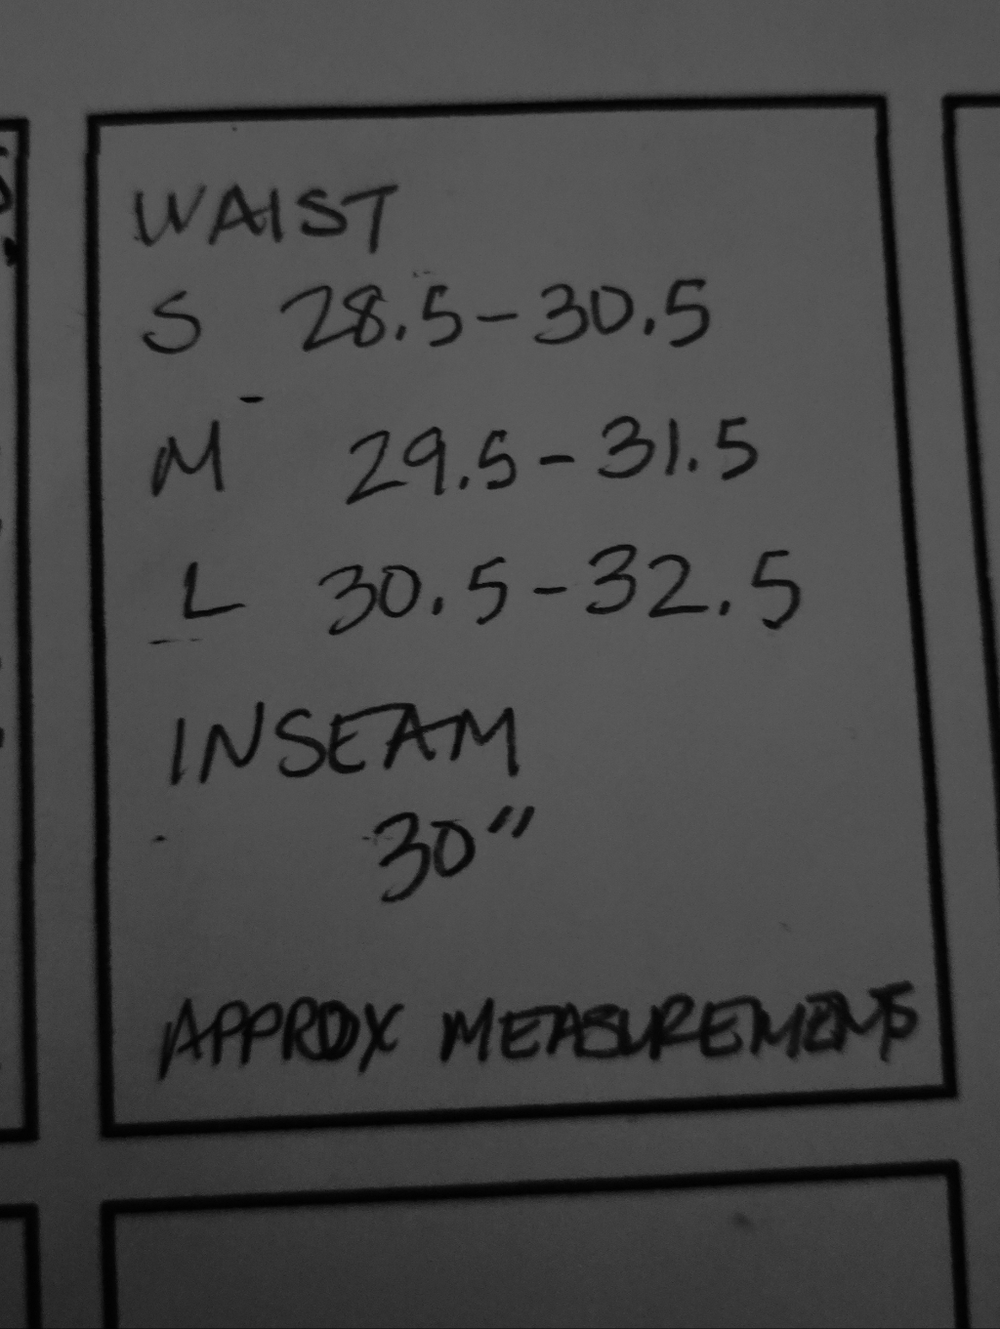 WAIST
S 28.5-30.5
M 29.5-31.5
L 30.5-32.5
INSEAM
30"
APPROX MEASUREMENTS